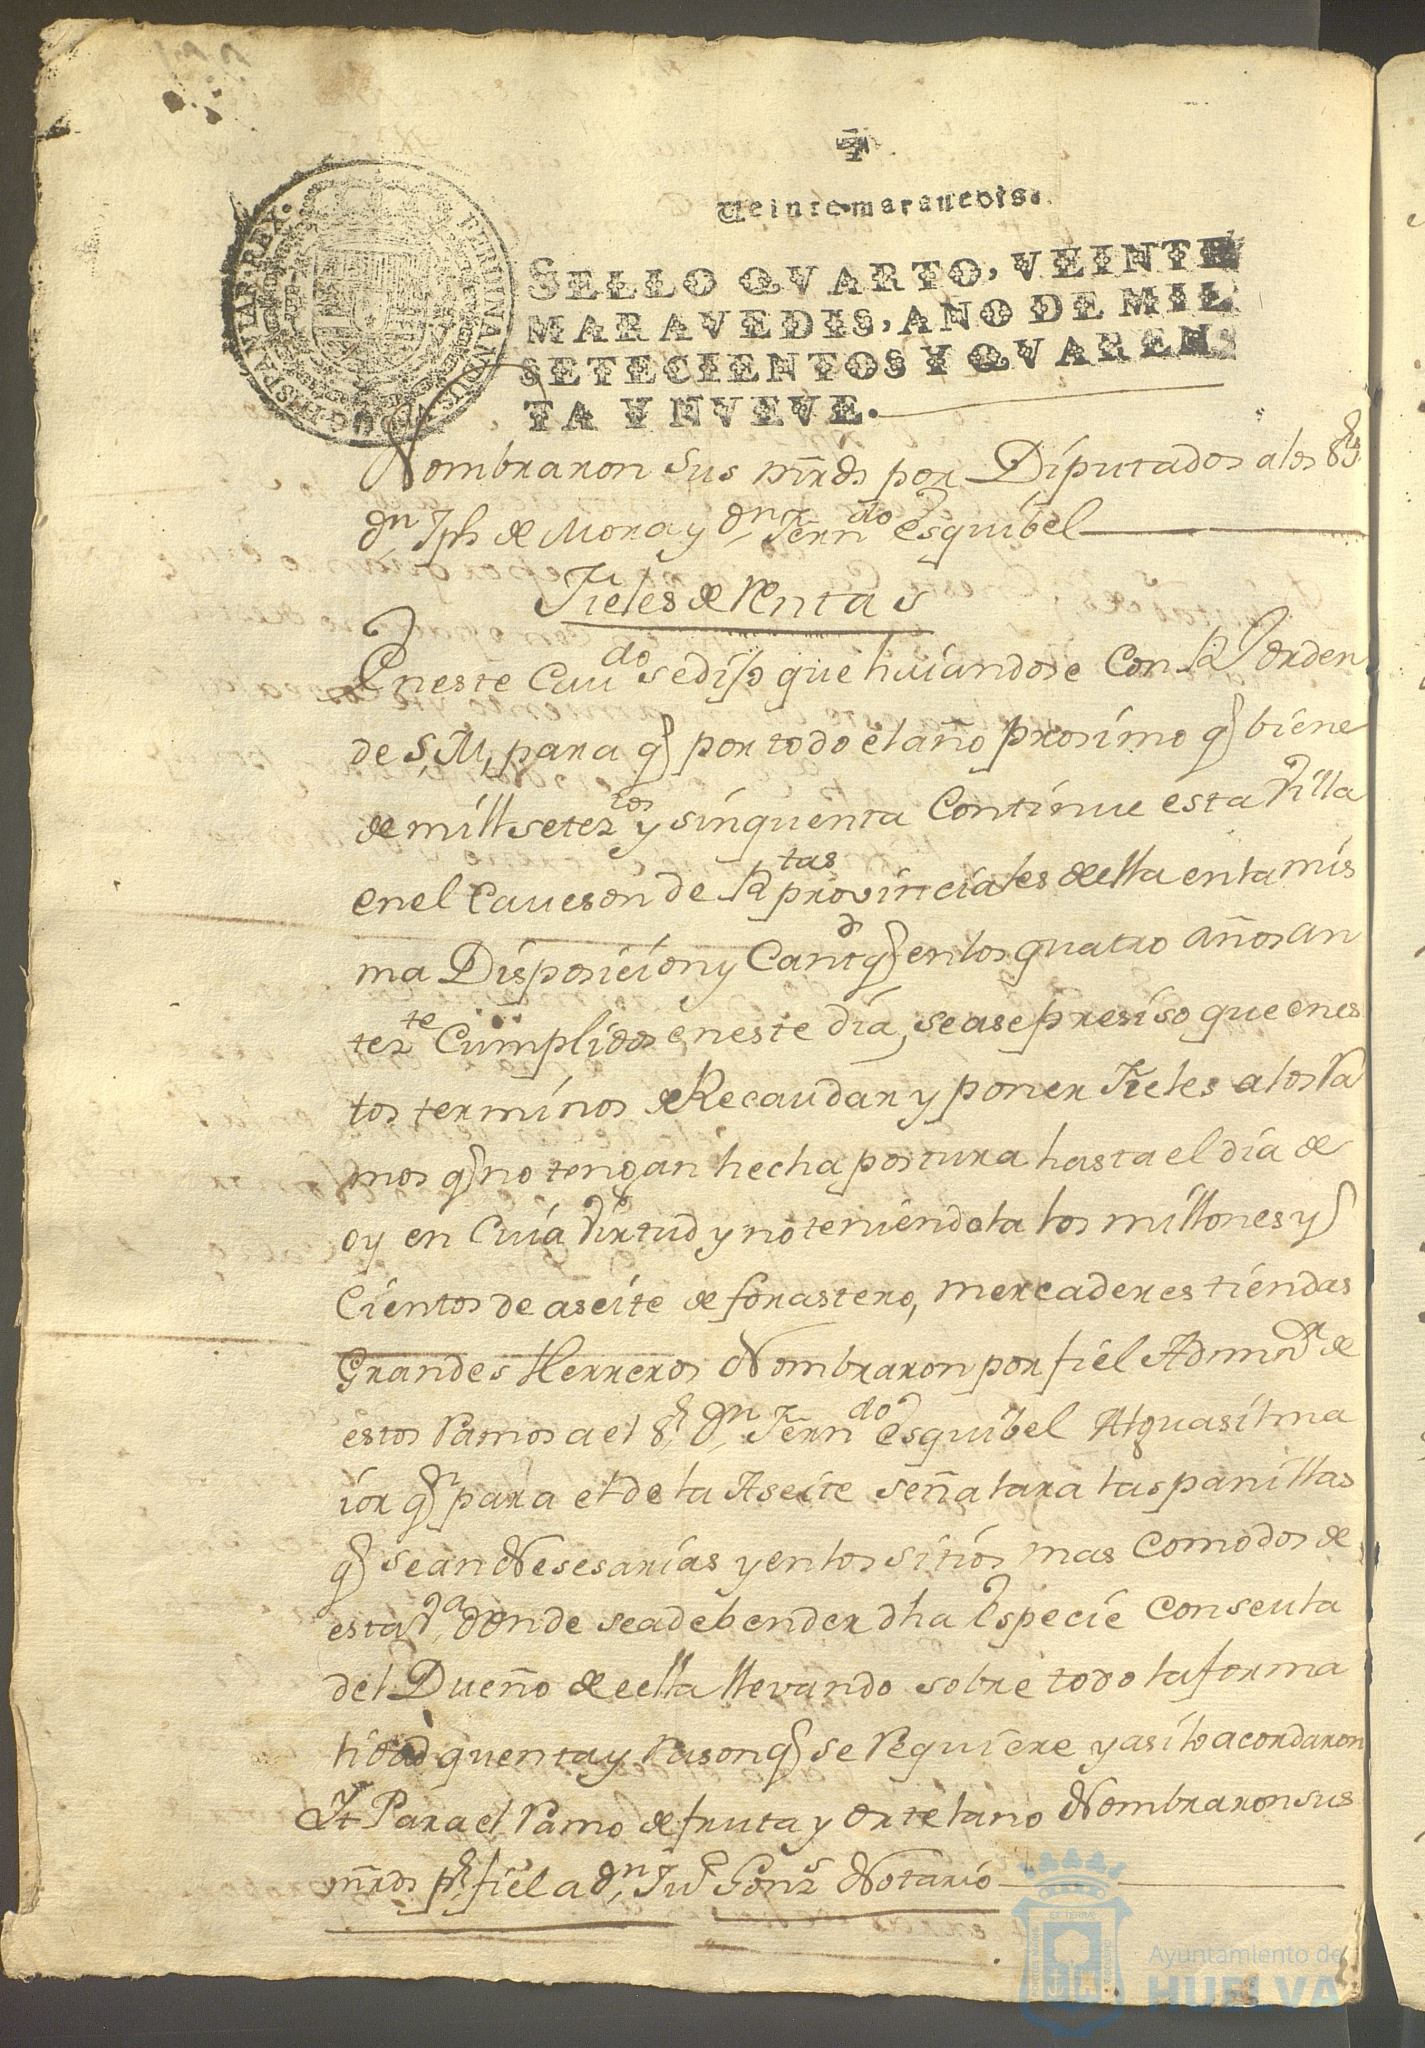 Veinte maravedis.
SELLO QVARTO, VEINTE
MARAVEDIS, AÑO DE MIL
SETECIENTOS Y QVAREN
TA Y NVEVE.
Nombraron sus mrds por Diputados a los Srs
Dn Jph de Mora y Dn Ferndo Esquibel
Fieles de Rentas
En este Caudo se dijo que hauiandose Con Rl orden
de S, M, para q por todo el año prosimo q biene
de mill setezos y sinquenta Continue esta Villa
en el Caueson de Rtas provinciales de ella en la mis
ma Disposicion y Cantd q en los quatro años an
tezte Cumplidos en este dia, se ase presiso que en es
tos terminos de Recaudar y poner Fieles a los Ra
mos q no tengan hecha postura hasta el dia de
oy en Cuia Virtud y no teniendola los millones y
Cientos de aseite de forastero, mercaderes tiendas
Grandes Herreros Nombraron por fiel Admor de
estos Ramos a el Sr Dn Ferndo Esquibel Alguasil ma
ior qn para el de la Aseite señalara las panillas
q sean Nesesarias y en los sitios mas Comodos de
esta Va donde se a de bender dha Especie Con seula
del Dueño de ella llevando sobre todo la forma
lidad quenta y Rason q se Requiere y asi lo acordaron
It Para el Ramo de fruta y ortelano Nombraron sus
mrds pr fiel a Dn Ju Gonz Notario
Ayuntamiento de
HUELVA